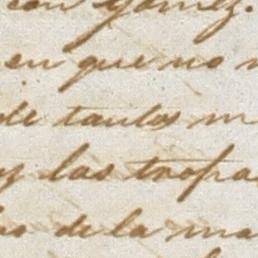 con Gomez.
en que no
de tantos m
y las tropa
de la ma